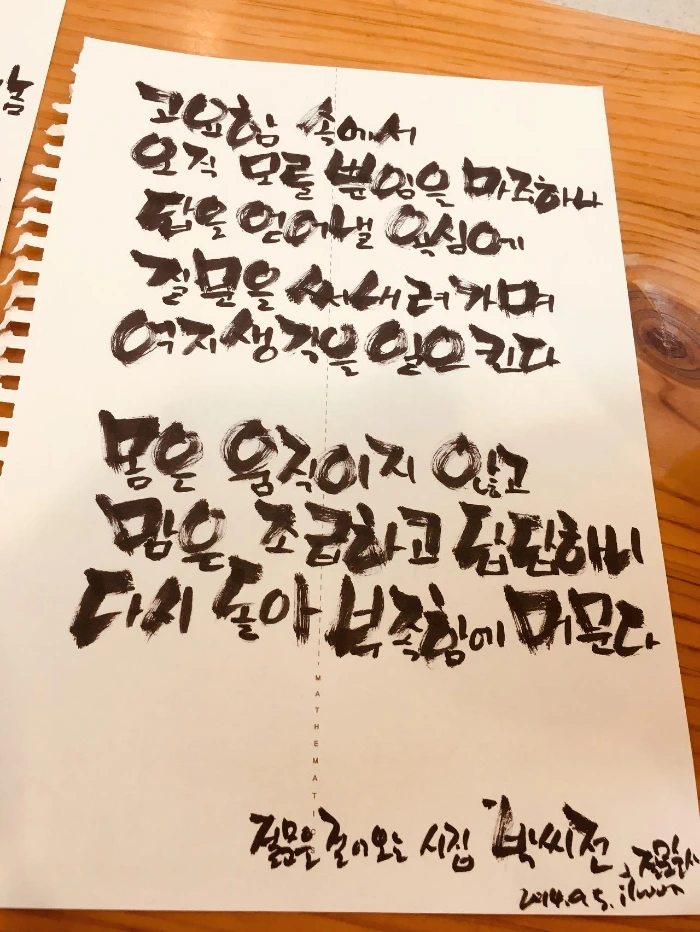 고요함 속에서
오직 모를 뿐임을 마주하나
답을 얻어낼 욕심에
질문을 써내려가며
억지생각을 일으킨다
몸은 움직이지 않고
맘은 조급하고 답답해니
다시 돌아 부족함에 머문다
MATHEMAT
젊음은 걸어오는 시집 박씨전
2014.9.5. ilwon